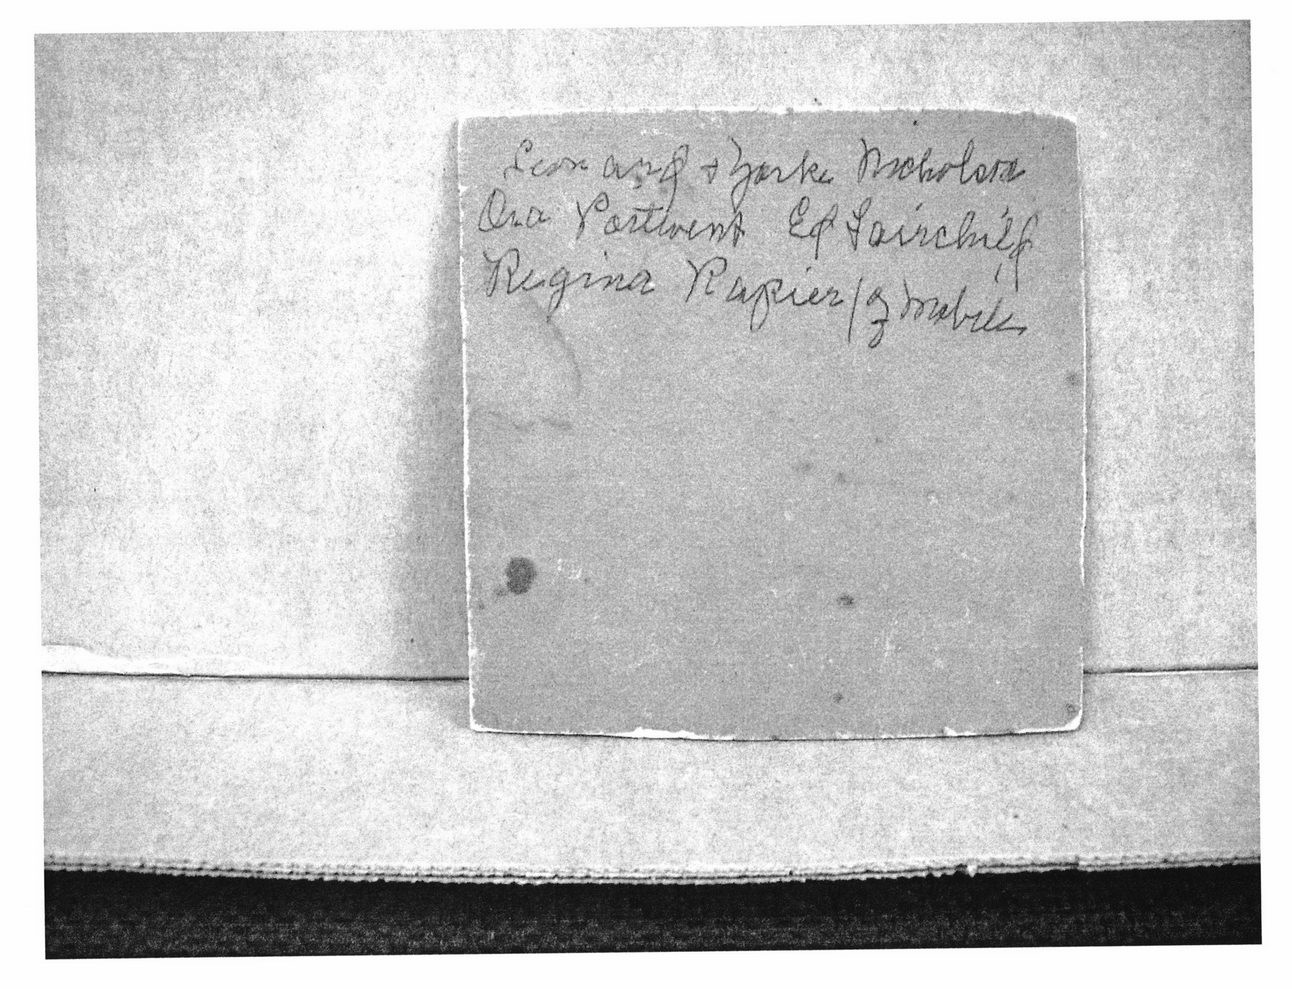 Leonard & Yorke Nicholson
Ora Portwent Ed Fairchild
Regina Rapier / of Mobile